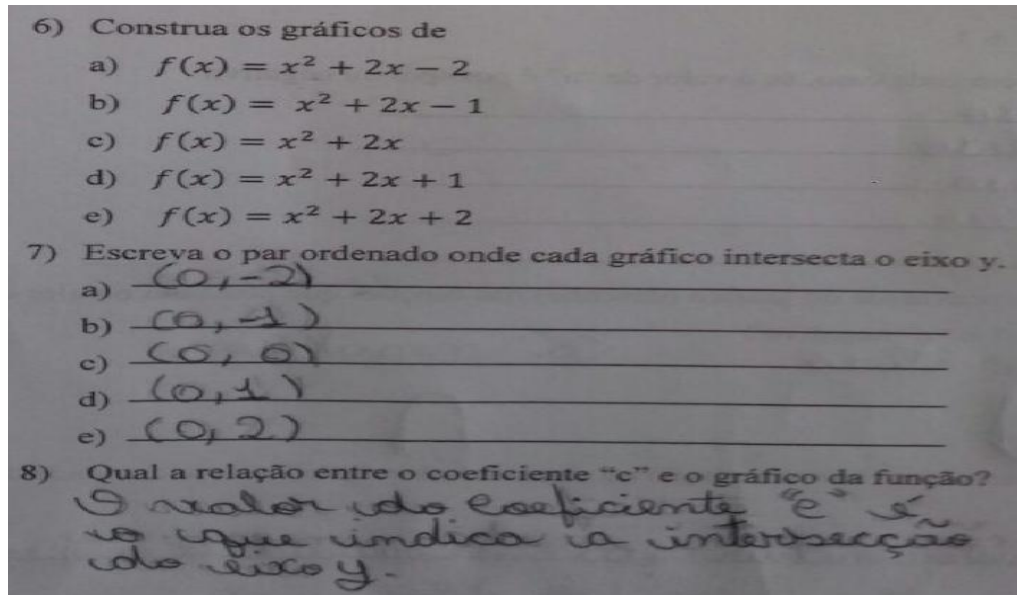 6) Construa os gráficos de
a) f(x) = x² + 2x − 2
b) f(x) = x² + 2x − 1
c) f(x) = x² + 2x
d) f(x) = x² + 2x + 1
e) f(x) = x² + 2x + 2
7) Escreva o par ordenado onde cada gráfico intersecta o eixo y.
a) (0,-2)
b) (0,-1)
c) (0, 0)
d) (0,1)
e) (0,2)
8) Qual a relação entre o coeficiente “c” e o gráfico da função?
O valor do coeficiente "c" é
o que indica a intersecção
do eixo y.